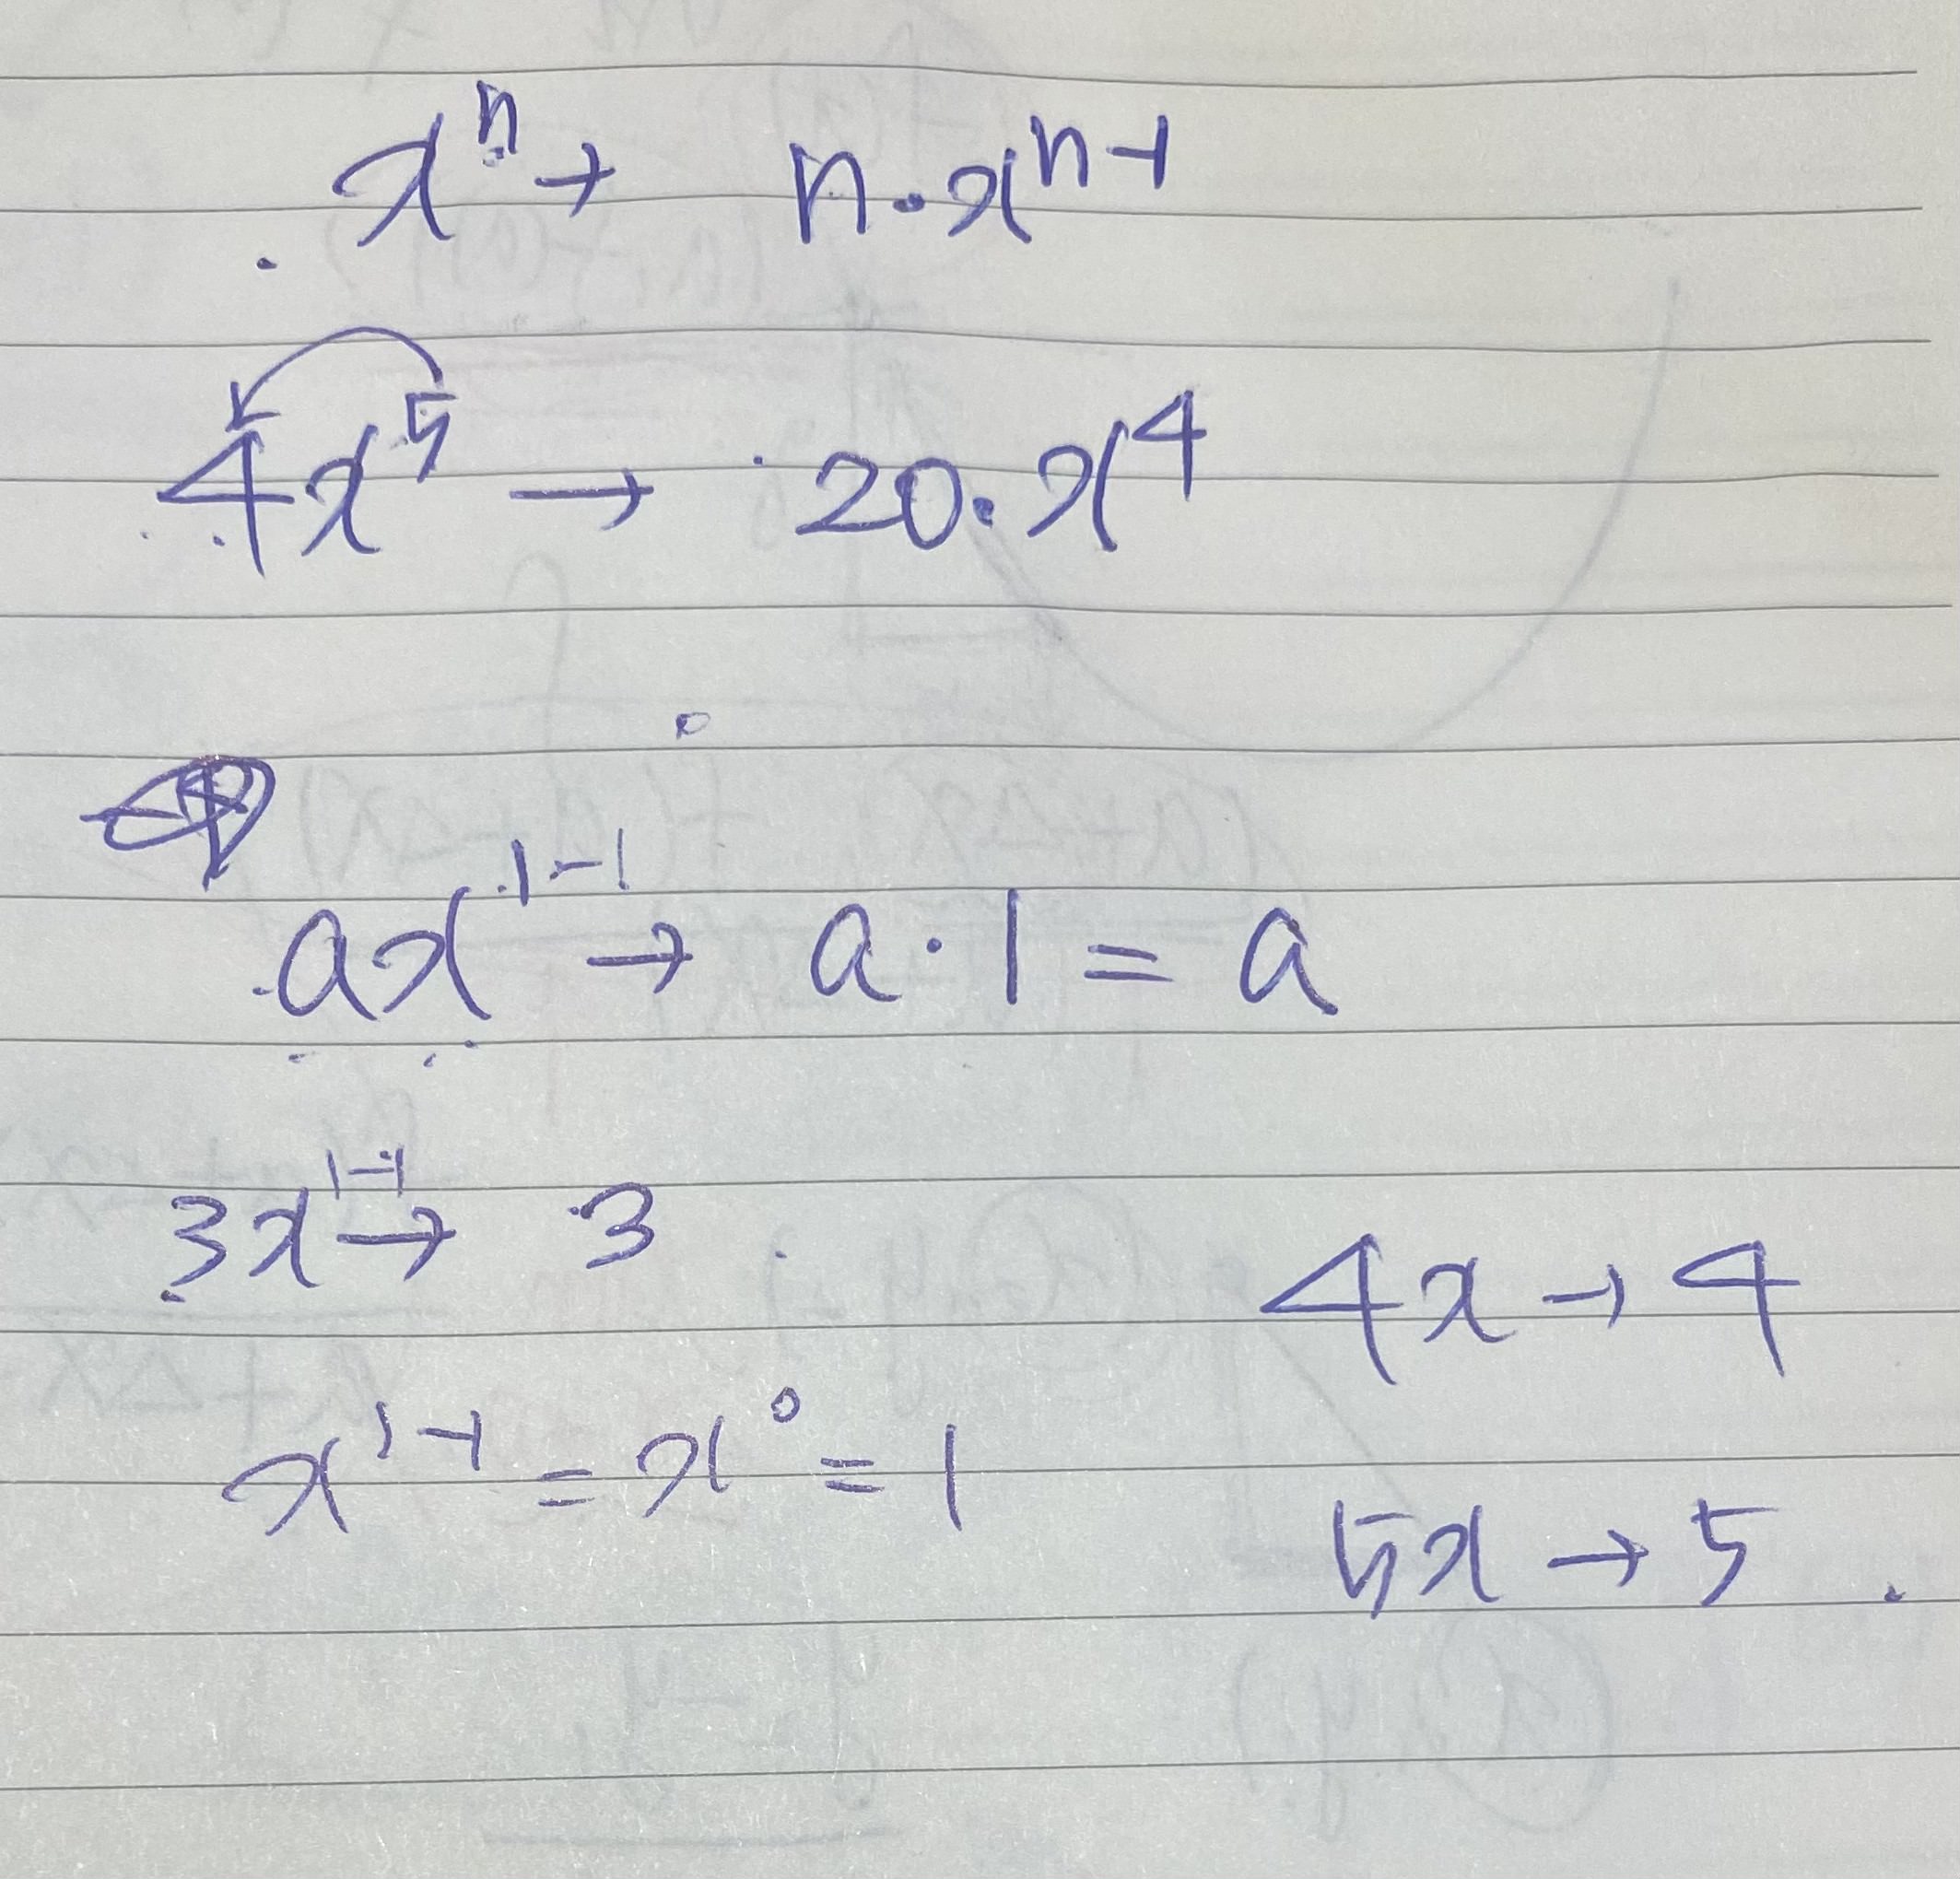 xⁿ → n·xⁿ⁻¹
4x⁵ → 20·x⁴
ax¹⁻¹ → a·1 = a
3x¹⁻¹ → 3
4x → 4
x¹⁻¹ = x⁰ = 1
5x → 5